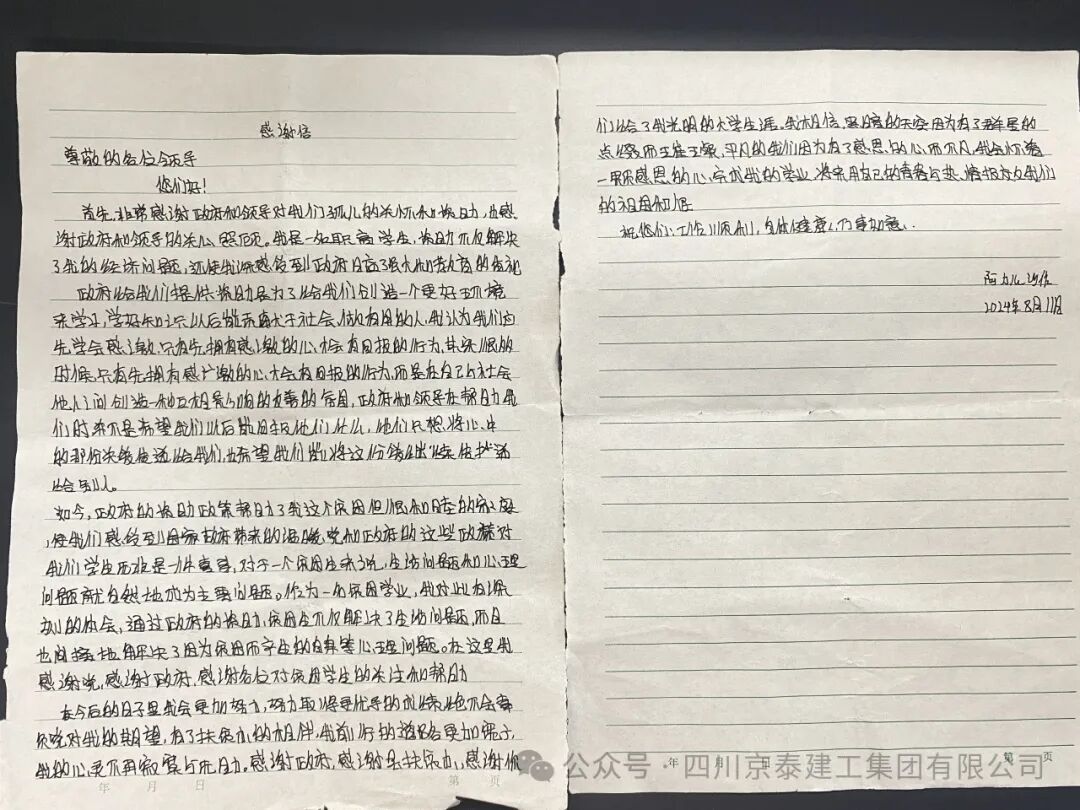 感谢信
尊敬的各位领导
您们好！
首先，非常感谢政府和领导对我们孤儿的关怀和资助，也感
谢政府和领导的关心照顾。我是一名职高学生，资助不仅解决
了我的经济问题，还使我深感受到政府日益强大和教育的重视
政府给我们提供资助是为了给我们创造一个更好环境
来学习，学好知识以后能贡献于社会，做有用的人，我认为我们应
先学会感激，只有先拥有感激的心，才会有回报的行为，其实很的
时候，只有先拥有感广激的心才会有回报的行为，而是在自己与社会
他人间创造一种互相影响的友善的信用，政府和领导在帮助我
们时并不是希望我们以后能回报他们什么，他们只想将心中
的那份关爱传递给我们，也希望我们能将这份爱继续传递
给别人。
如今，政府的资助政策帮助了我这个贫困但很和睦的家庭
，使我们感受到国家政府带来的温暖，党和政府的这些政策对
我们学生而言是一件喜事，对于一个贫困生来说，生活问题和心理
问题就自然地成为主要问题。作为一名贫困学业，我对此有深
刻的体会，通过政府的资助，贫困生不仅解决了生活问题，而且
也间接地解决了因为贫困而产生的自卑等心理问题。在这里我
感谢党，感谢政府，感谢各位对贫困学生的关注和帮助
在今后的日子里我会更加努力，努力取得更优异的成绩，绝不会辜
负党对我的期望，有了扶贫办的相伴，我前行的道路更加踏实，
我的心灵不再寂寞与无助。感谢政府，感谢县扶贫办，感谢你
年 月 日 第 页
们给了我光明的大学生涯。我相信，黑暗的天空因为有了群星的
点缀而璀璨，平凡的我们因为有了感恩的心而不凡，我会怀着
一颗感恩的心，完成我的学业，将来用自己的青春与热情报效我们
的祖国和
祝您们：工作顺利，身体健康，万事如意。
阿力
2024年8月11日
年 月 日 第 页
公众号·四川京泰建工集团有限公司